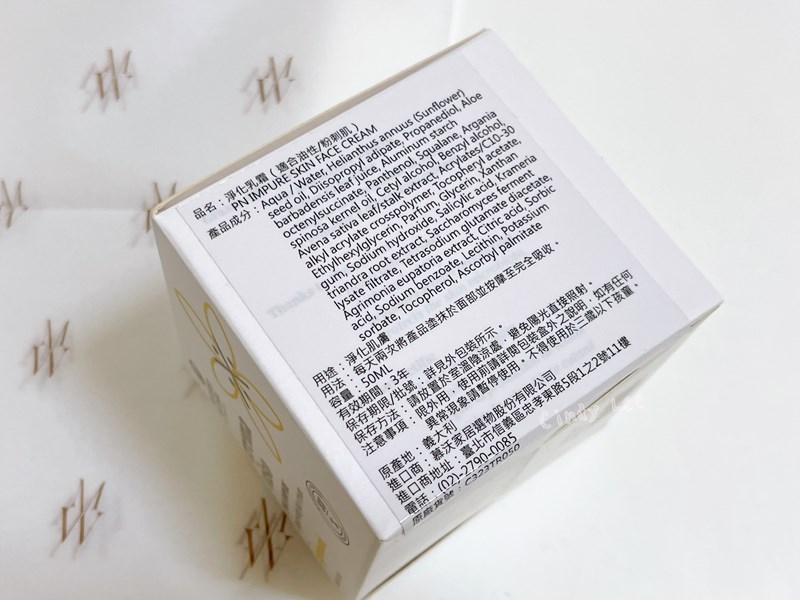 品名：淨化乳霜（適合油性/粉刺肌）
PN IMPURE SKIN FACE CREAM
產品成分：Aqua / Water, Helianthus annuus (Sunflower)
seed oil, Diisopropyl adipate, Propanediol, Aloe
barbadensis leaf juice, Aluminum starch
octenylsuccinate, Panthenol, Squalane, Argania
spinosa kernel oil, Cetyl alcohol, Benzyl alcohol,
Avena sativa leaf/stalk extract, Acrylates/C10-30
alkyl acrylate crosspolymer, Tocopheryl acetate,
Ethylhexylglycerin, Parfum, Glycerin, Xanthan
gum, Sodium hydroxide, Salicylic acid, Krameria
triandra root extract, Saccharomyces ferment
lysate filtrate, Tetrasodium glutamate diacetate,
Agrimonia eupatoria extract, Citric acid, Sorbic
acid, Sodium benzoate, Lecithin, Potassium
sorbate, Tocopherol, Ascorbyl palmitate
用途：淨化肌膚
用法：每天兩次將產品塗抹於面部並按摩至完全吸收。
容量：50ML
有效期間：3年
保存期限/批號：詳見外包裝所示。
保存方法：請放置於室溫陰涼處，避免陽光直接照射。
注意事項：限外用，使用前請詳閱包裝盒外之說明，如有任何
異常現象請暫停使用。不得使用於三歲以下孩童。
原產地：義大利
進口商：慕沃家居選物股份有限公司
進口商地址：臺北市信義區忠孝東路5段1之2號11樓
電話：(02)-2790-0085
原廠貨號：C323TR050
Cindy Lee